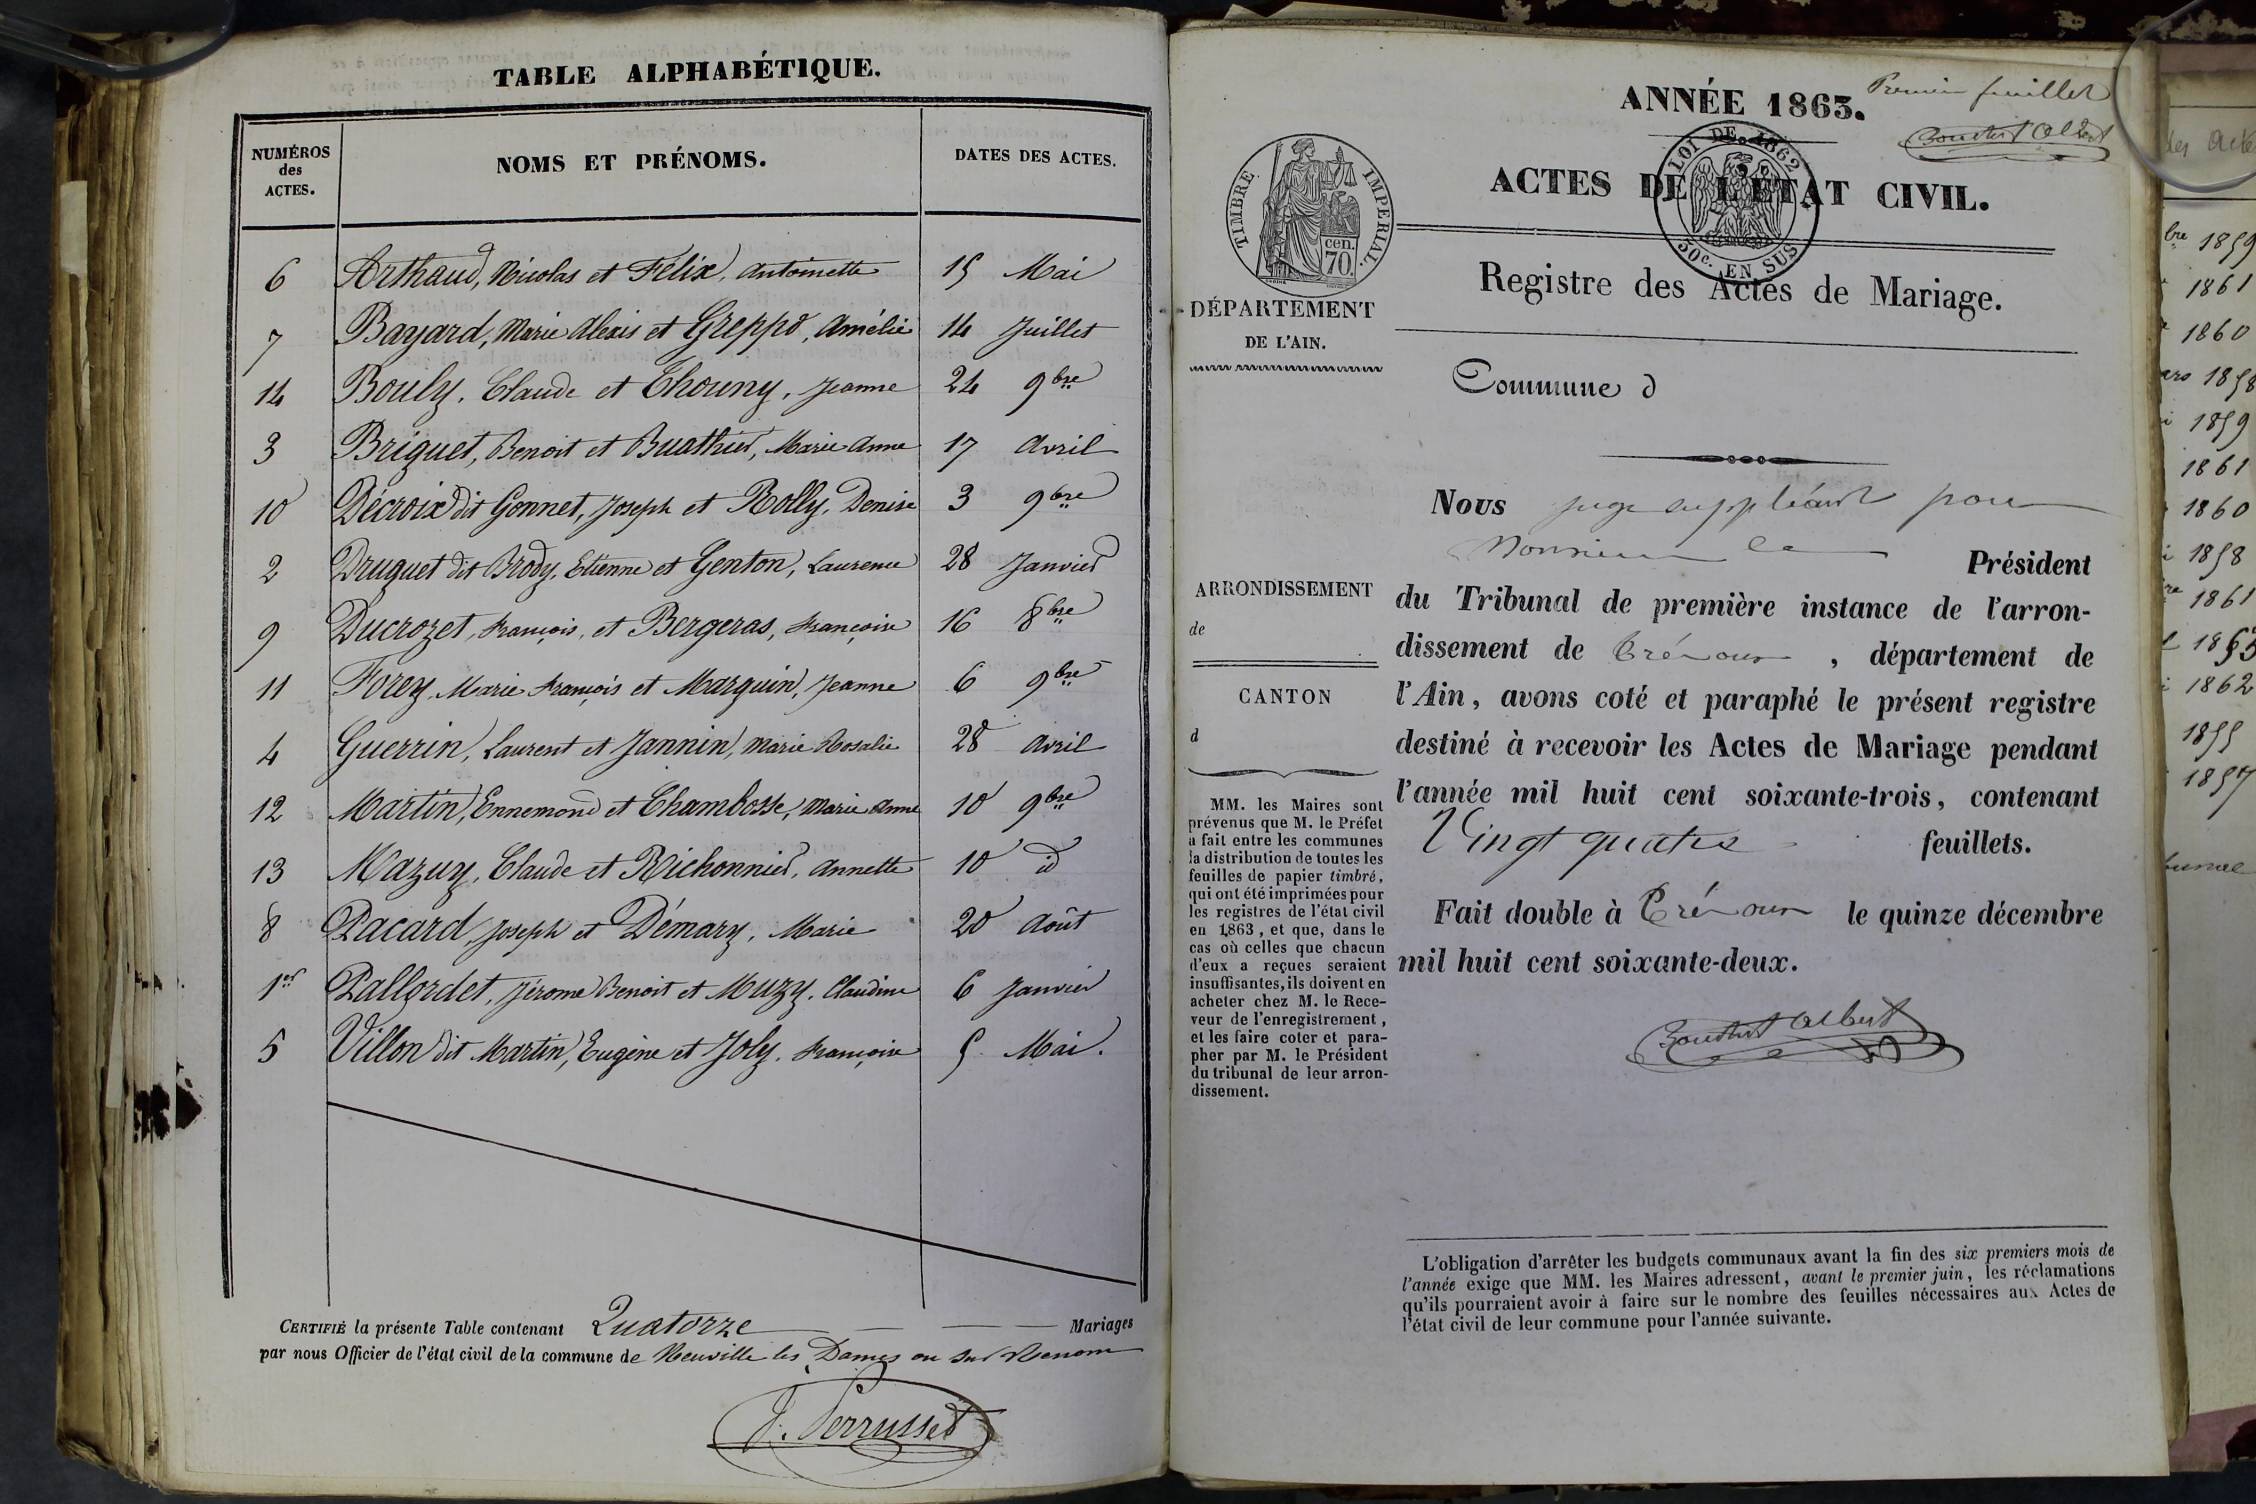 TABLE ALPHABÉTIQUE.
NUMÉROS des ACTES. NOMS ET PRÉNOMS. DATES DES ACTES.
6 Arthaud, Nicolas et Félix, Antoinette 15 Mai
7 Bayard, Marie Alexis et Greppo, Amélie 14 Juillet
14 Bouly, Claude et Chouny, Jeanne 24 9bre
3 Briguet, Benoit et Buathier, Marie Anne 17 Avril
10 Décroix dit Gonnet, Joseph et Rolly, Denise 3 9bre
2 Druguet dit Brody, Etienne et Genton, Laurence 28 Janvier
9 Ducrozet, François, et Bergeras, Françoise 16 8bre
11 Forey, Marie François et Marguin, Jeanne 6 9bre
4 Guerrin, Laurent et Jannin, Marie Rosalie 28 Avril
12 Martin, Ennemond et Chambosse, Marie Anne 10 9bre
13 Mazuy, Claude et Richonnier, Annette 10 id
8 Pacard, Joseph et Démary, Marie 20 Août
1er Pallordet, Jérome Benoit et Muzy, Claudine 6 Janvier
5 Villon dit Martin, Eugène et Joly, Françoise 5 Mai.
CERTIFIÉ la présente Table contenant Quatorze Mariages
par nous Officier de l'état civil de la commune de Neuville les Dames ou sur Renom
J. Perrusset
Premier feuillet
ANNÉE 1863.
Albert
LOI DE 1862
50c. EN SUS
TIMBRE IMPERIAL.
cen.
70.
ACTES DE L'ÉTAT CIVIL.
Registre des Actes de Mariage.
DÉPARTEMENT
DE L'AIN.
Commune d
ARRONDISSEMENT
de
CANTON
d
MM. les Maires sont
prévenus que M. le Préfet
a fait entre les communes
la distribution de toutes les
feuilles de papier timbré,
qui ont été imprimées pour
les registres de l'état civil
en 1863, et que, dans le
cas où celles que chacun
d'eux a reçues seraient
insuffisantes, ils doivent en
acheter chez M. le Rece-
veur de l'enregistrement,
et les faire coter et para-
pher par M. le Président
du tribunal de leur arron-
dissement.
Nous juge suppléant pour
Monsieur le Président
du Tribunal de première instance de l'arron-
dissement de Trévoux, département de
l'Ain, avons coté et paraphé le présent registre
destiné à recevoir les Actes de Mariage pendant
l'année mil huit cent soixante-trois, contenant
Vingt quatre feuillets.
Fait double à Trévoux le quinze décembre
mil huit cent soixante-deux.
Albert
L'obligation d'arrêter les budgets communaux avant la fin des six premiers mois de
l'année exige que MM. les Maires adressent, avant le premier juin, les réclamations
qu'ils pourraient avoir à faire sur le nombre des feuilles nécessaires aux Actes de
l'état civil de leur commune pour l'année suivante.
bre 1859
1861
1860
1858
1859
1861
1860
1858
1861
1862
1855
1857